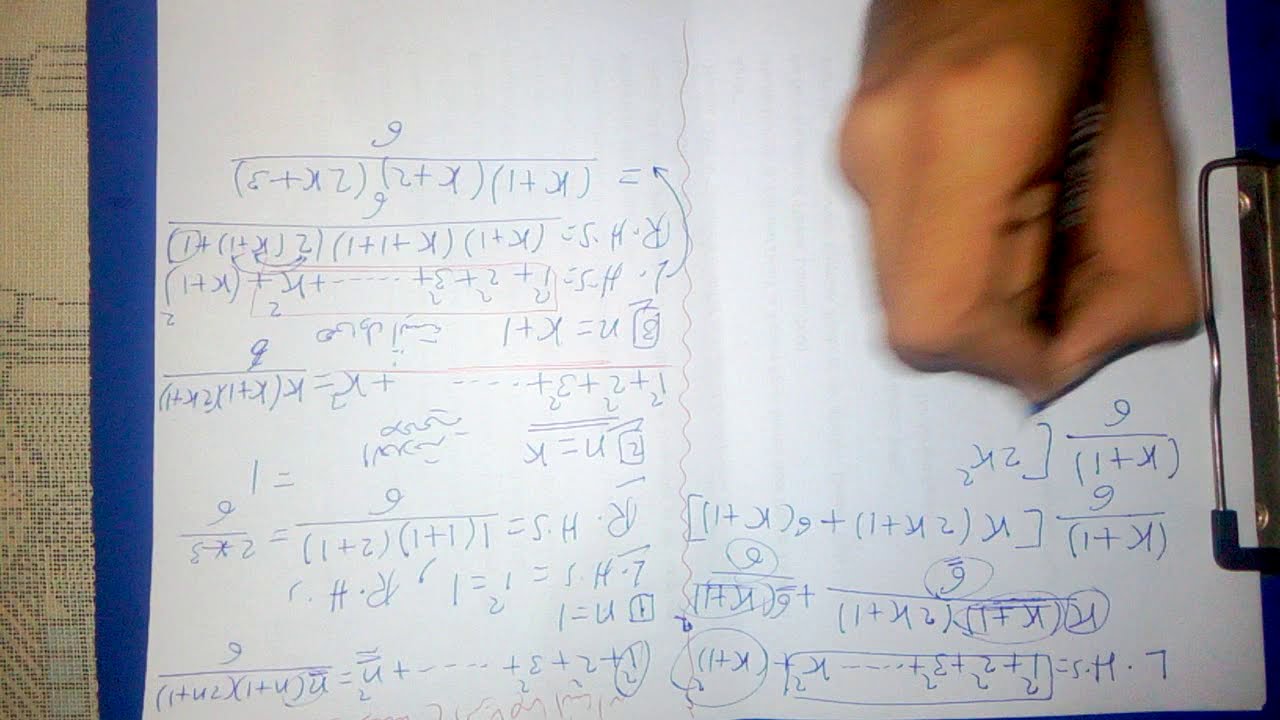 1²+2²+3²+-----+n²=n(n+1)(2n+1)/6
1 n=1
L.H.S=1²=1, R.H.S
R.H.S=1(1+1)(2+1)/6=2×3/6
=1
2 n=K
1²+2²+3²+-----+K²=K(K+1)(2K+1)/6
3 n=K+1
L.H.S=1²+2²+3²+-----+K²+(K+1)²
R.H.S=(K+1)(K+1+1)(2(K+1)+1)/6
=(K+1)(K+2)(2K+3)/6
L.H.S=[1²+2²+3²+-----K²]+(K+1)²
K(K+1)(2K+1)/6+6(K+1)²/6
(K+1)/6[K(2K+1)+6(K+1)]
(K+1)/6[2K²